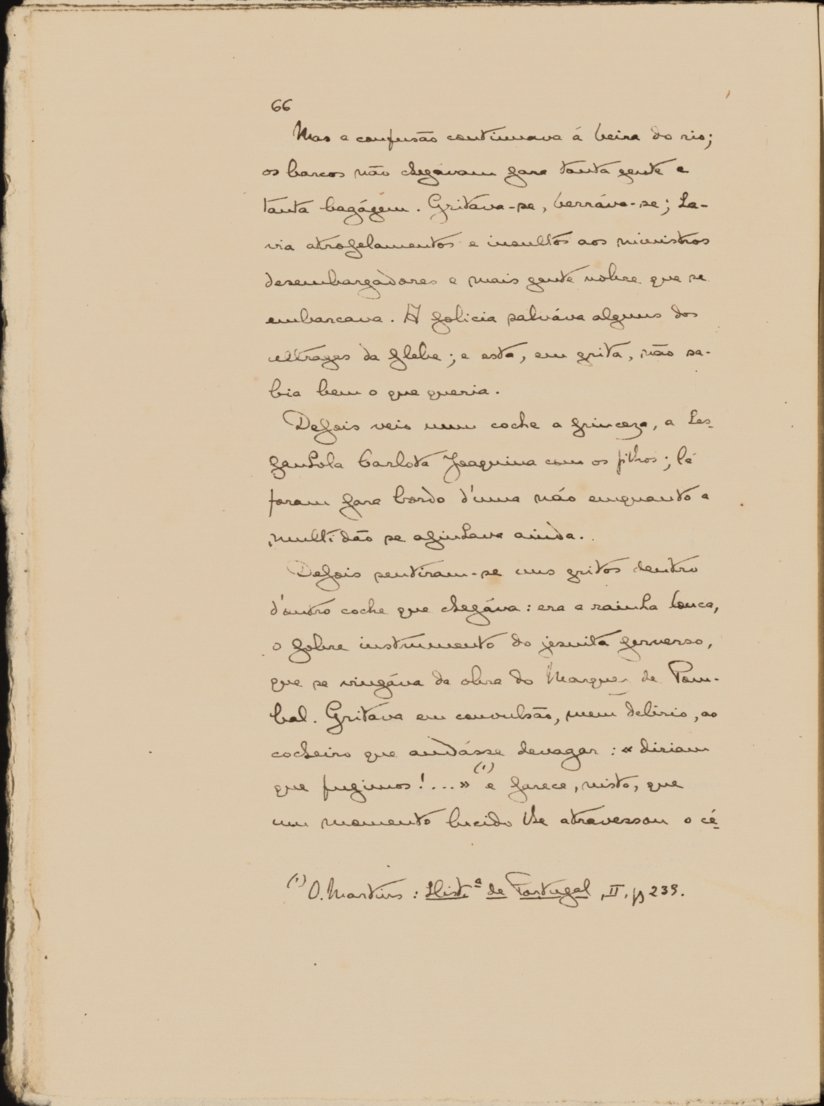 66
Mas a confusão continuava á beira do rio;
os barcos não chegávam para tanta gente e
tanta bagágem. Gritáva-se, berráva-se; ha-
via atropelamentos e insultos aos ministros
desembargadores e mais gente nobre que se
embarcava. A policia salváva alguns dos
ultrages da plebe; e esta, em grita, não sa-
bia bem o que queria.
Depois veio num coche a princeza, a hes-
panhola Carlota Joaquina com os filhos; lá
foram para bordo d'uma náo emquanto a
multidão se apinhava ainda.
Depois sentiram-se uns gritos dentro
d'outro coche que chegáva: era a rainha louca,
o pobre instrumento do jesuita perverso,
que se vingáva da obra do Marquez de Pom-
bal. Gritava em convulsão, num delirio, ao
cocheiro que andásse devagar: «diriam
que fugimos!...» (1) e parece, nisto, que
um momento lucido lhe atravessou o cé-
(1) O. Martins: Hist.ª de Portugal, II, p 239.